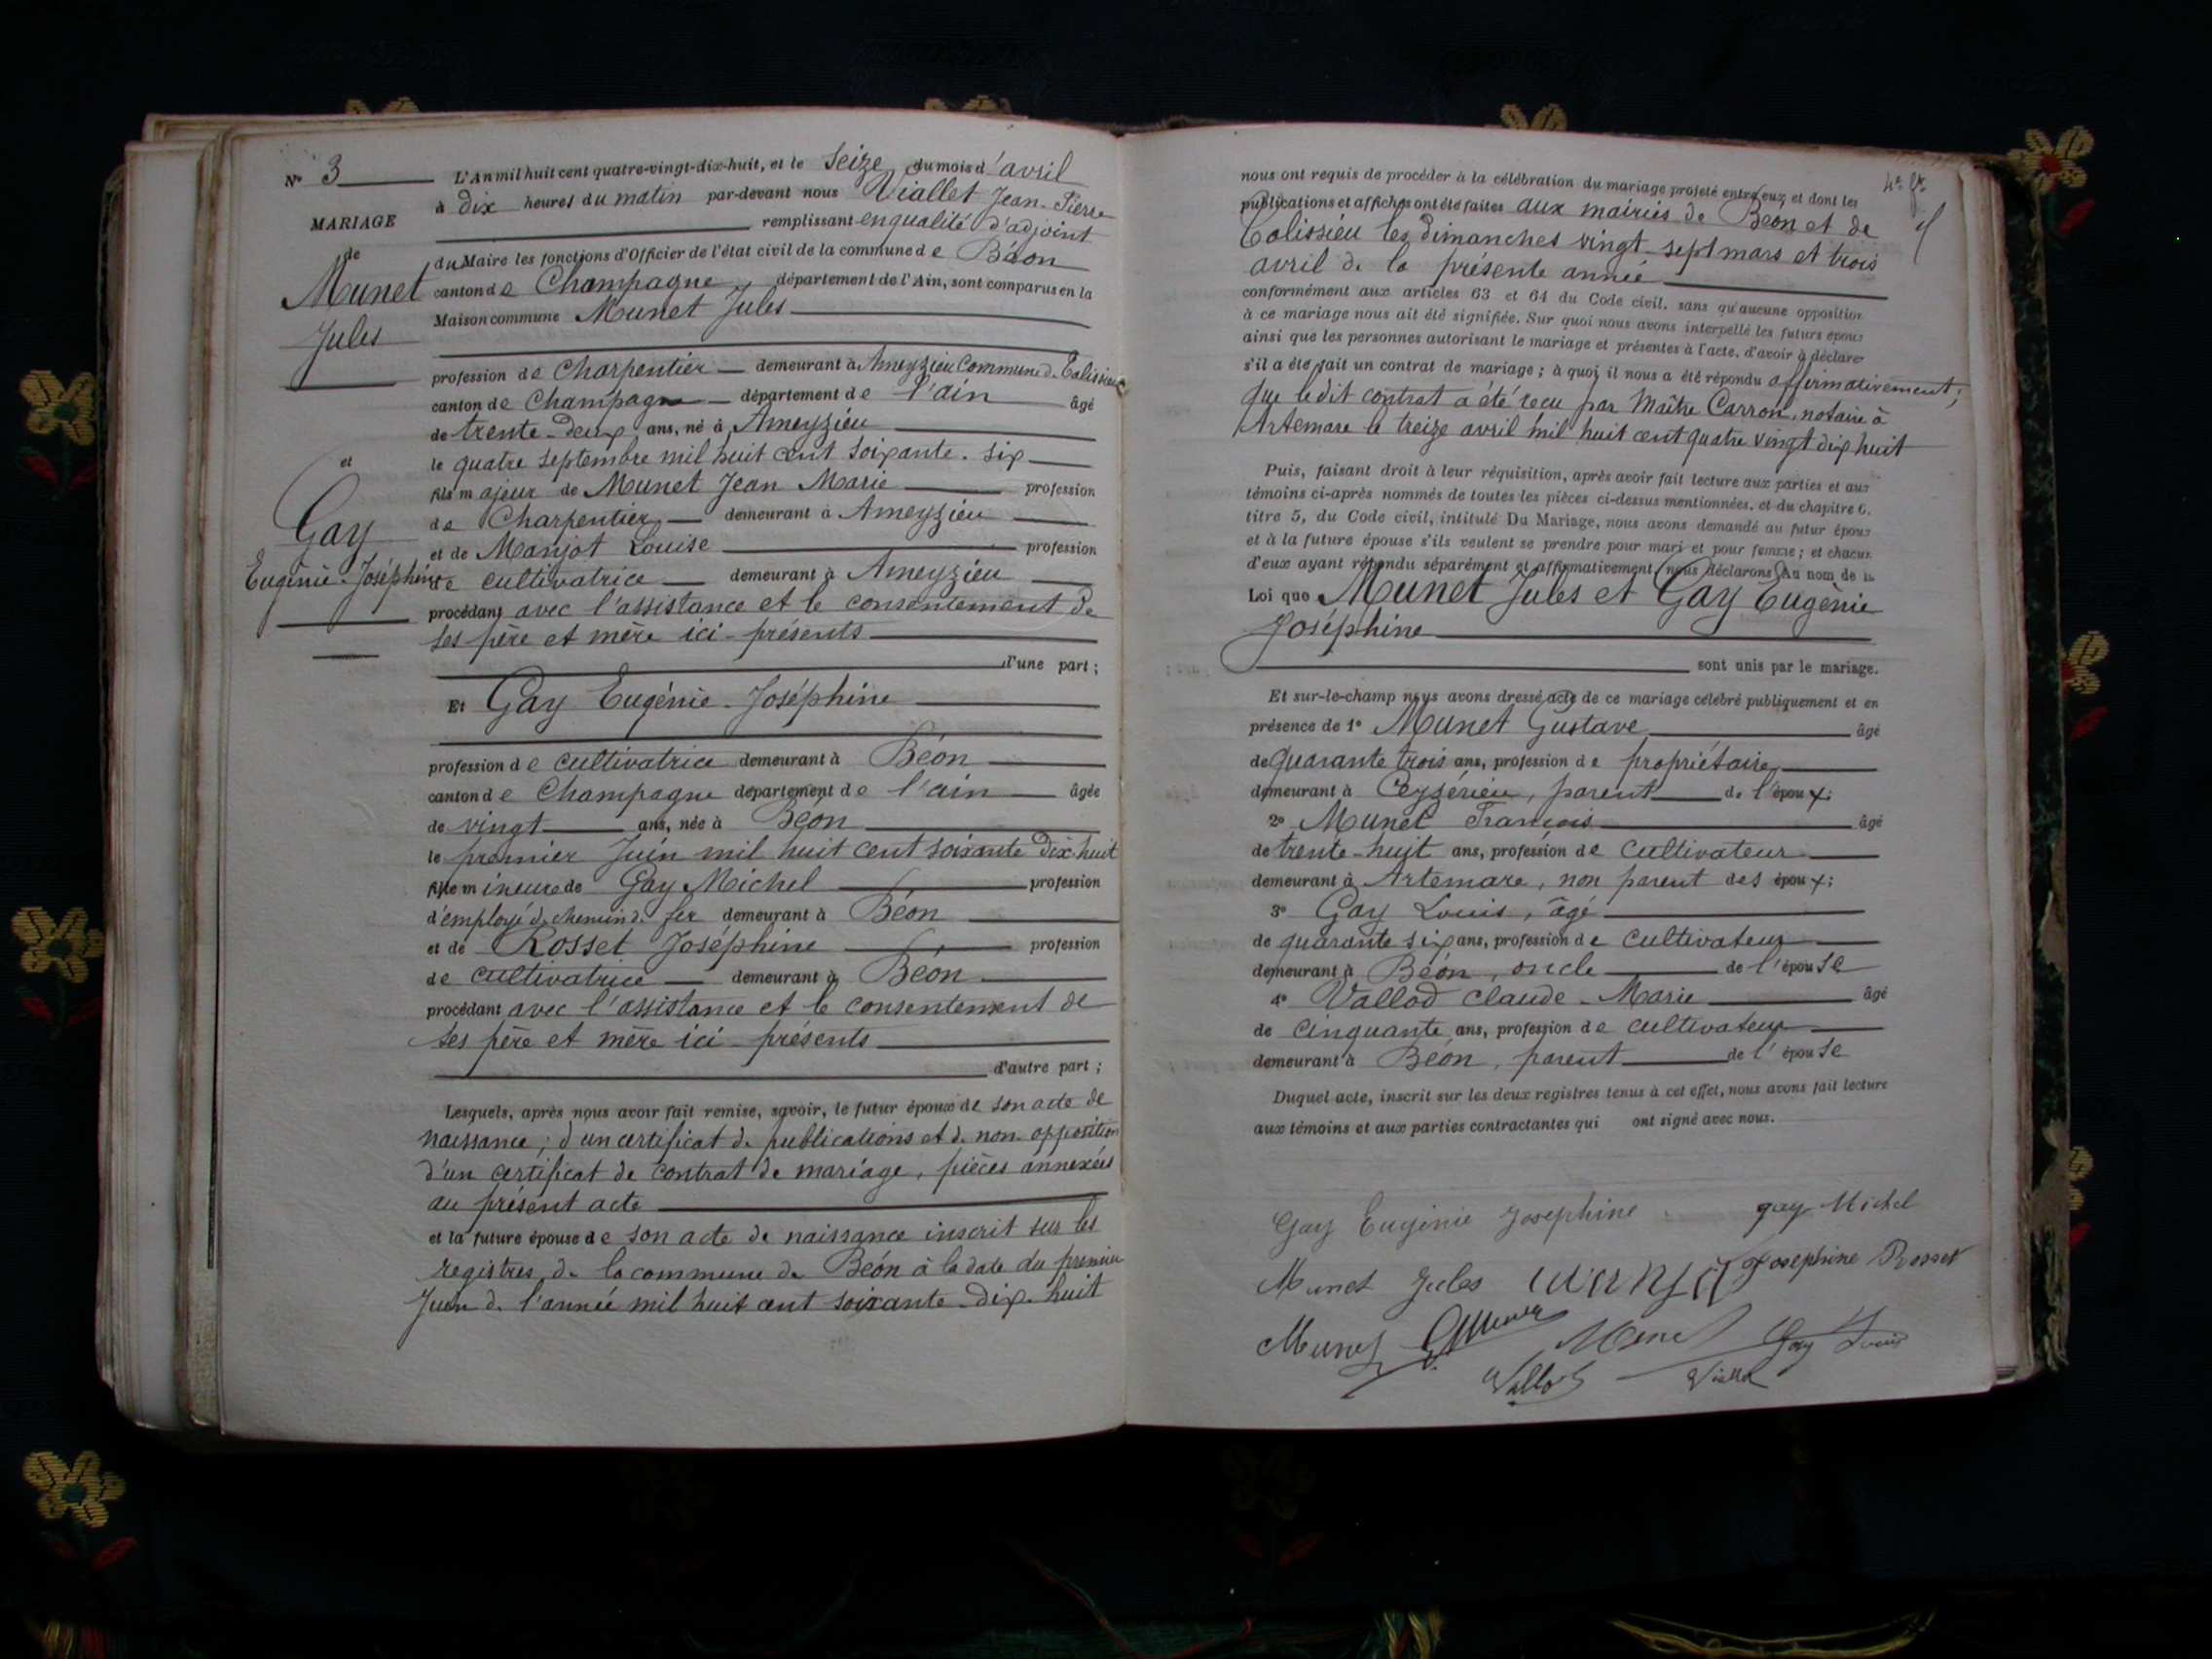 Nº 3
MARIAGE
de
Munet
Jules
et
Gay
Eugénie-Joséphine
L'An mil huit cent quatre-vingt-dix-huit, et le seize du mois d'avril
à dix heures du matin par-devant nous Viallet Jean-Pierre
remplissant en qualité d'adjoint
du Maire les fonctions d'Officier de l'état civil de la commune de Béon
canton de Champagne département de l'Ain, sont comparus en la
Maison commune Munet Jules
profession de Charpentier demeurant à Ameyzieu Commune de Talissieu
canton de Champagne département de l'ain âgé
de trente-deux ans, né à Ameyzieu
le quatre septembre mil huit cent soixante-six
fils majeur de Munet Jean Marie profession
de Charpentier demeurant à Ameyzieu
et de Manjot Louise profession
de cultivatrice demeurant à Ameyzieu
procédant avec l'assistance et le consentement de
ses père et mère ici-présents
d'une part ;
Et Gay Eugénie-Joséphine
profession de cultivatrice demeurant à Béon
canton de Champagne département de l'ain âgée
de vingt ans, née à Béon
le premier Juin mil huit cent soixante Dix-huit
fille mineure de Gay Michel profession
d'employé de chemin de fer demeurant à Béon
et de Rosset Joséphine profession
de cultivatrice demeurant à Béon
procédant avec l'assistance et le consentement de
ses père et mère ici-présents
d'autre part ;
Lesquels, après nous avoir fait remise, savoir, le futur époux de son acte de
naissance ; d'un certificat de publications et de non-opposition
d'un certificat de contrat de mariage, pièces annexées
au présent acte
et la future épouse de son acte de naissance inscrit sur les
registres de la commune de Béon à la date du premier
Juin de l'année mil huit cent soixante-dix-huit
nous ont requis de procéder à la célébration du mariage projeté entre eux et dont les
publications et affiches ont été faites aux mairies de Béon et de
Talissieu les dimanches vingt-sept mars et trois
avril de la présente année
conformément aux articles 63 et 64 du Code civil, sans qu'aucune opposition
à ce mariage nous ait été signifiée. Sur quoi nous avons interpellé les futurs époux
ainsi que les personnes autorisant le mariage et présentes à l'acte, d'avoir à déclarer
s'il a été fait un contrat de mariage ; à quoi il nous a été répondu affirmativement ;
que ledit contrat a été reçu par Maître Carron, notaire à
Artemare le treize avril mil huit cent quatre vingt dix huit
Puis, faisant droit à leur réquisition, après avoir fait lecture aux parties et aux
témoins ci-après nommés de toutes les pièces ci-dessus mentionnées, et du chapitre 6,
titre 5, du Code civil, intitulé Du Mariage, nous avons demandé au futur époux
et à la future épouse s'ils veulent se prendre pour mari et pour femme ; et chacun
d'eux ayant répondu séparément et affirmativement, nous déclarons au nom de la
Loi que Munet Jules et Gay Eugénie
Joséphine
sont unis par le mariage.
Et sur-le-champ nous avons dressé acte de ce mariage célébré publiquement et en
présence de 1º Munet Gustave âgé
de quarante trois ans, profession de propriétaire
demeurant à Ceyzérieu, parent de l'époux ;
2º Munet François âgé
de trente-huit ans, profession de cultivateur
demeurant à Artemare, non parent des époux ;
3º Gay Louis, âgé
de quarante six ans, profession de cultivateur
demeurant à Béon, oncle de l'épouse
4º Vallod Claude-Marie âgé
de cinquante ans, profession de cultivateur
demeurant à Béon, parent de l'épouse
Duquel acte, inscrit sur les deux registres tenus à cet effet, nous avons fait lecture
aux témoins et aux parties contractantes qui ont signé avec nous.
Gay Eugénie Josephine gay Michel
Munet Jules Josephine Rosset
Munet Munet Gay Louis
Vallod